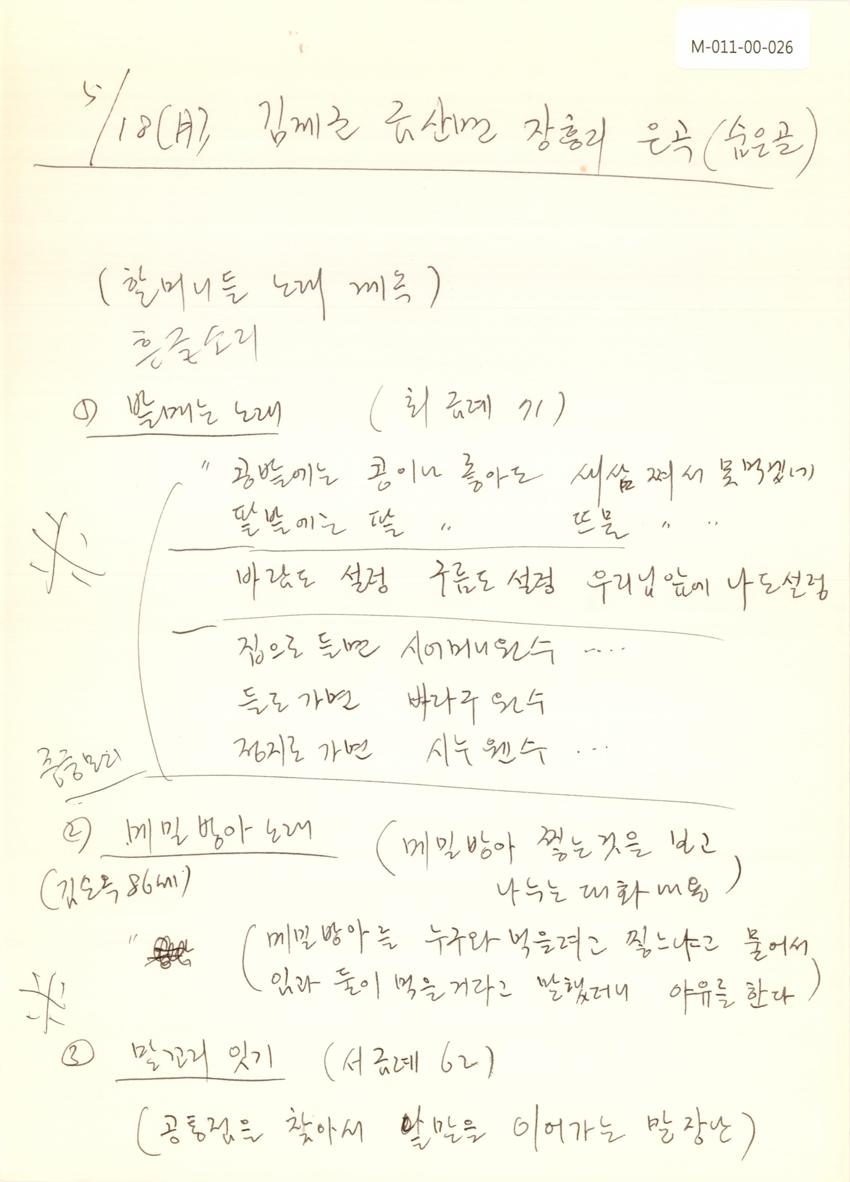 M-011-00-026
5/18(月), 김제군 금산면 장흥리 은곡(숨은골)
(할머니들 노래 제목)
흥글소리
① 밭매는 노래 (최금례 71)
" 콩밭에는 콩이나 좋아도 새삼쩌서 못먹겄네
팥밭에는 팥 " 뜨물 " "
바람도 설렁 구름도 설렁 우리님 앞에 나도 설렁
집으로 들면 시어머니 원수 ....
들로 가면 바라구 원수
정지로 가면 시누 웬수 ...
중중모리
② 메밀방아 노래 (메밀방아 찧는것을 보고
(김순옥 86세) 나누는 대화내용)
" (메밀방아를 누구와 먹을려고 찧느냐고 물어서,
임과 둘이 먹을거라고 말했더니 야유를 한다)
③ 말꼬리 잇기 (서금례 62)
(공통점을 찾아서 말을 이어가는 말장난)